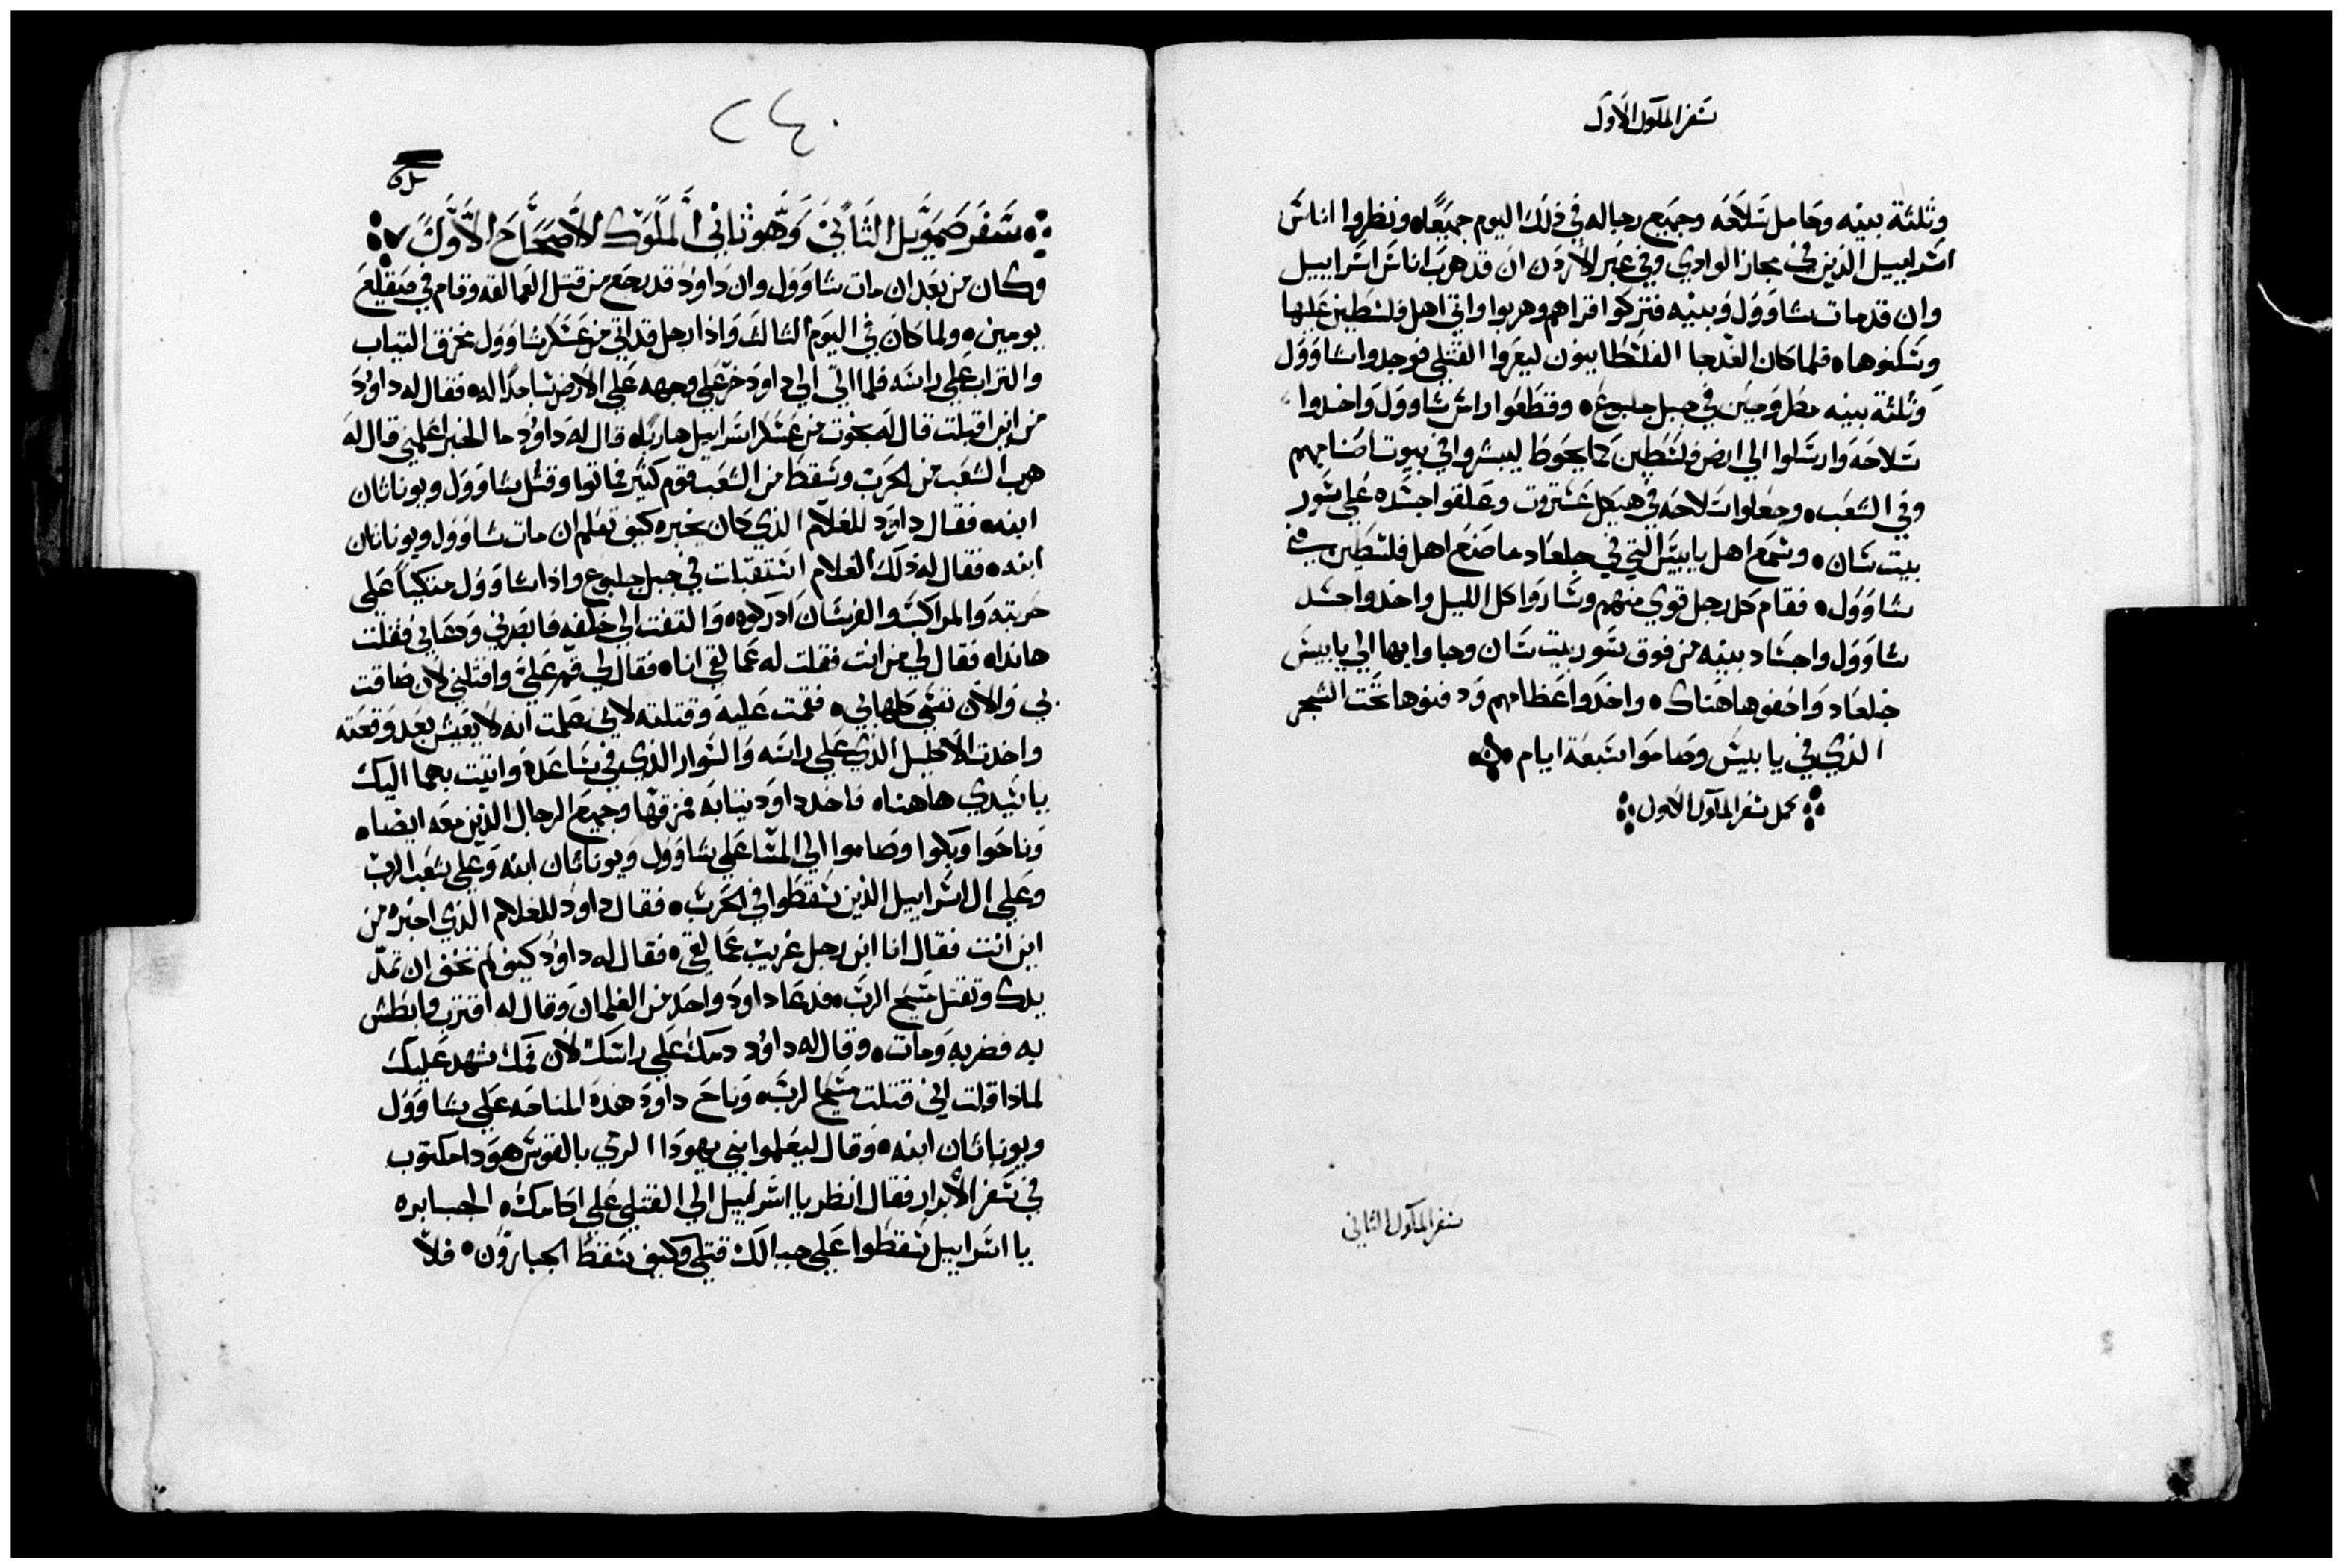 سفر الملوك الاول
وثلثة بنيه وحامل سلاحه وجميع رجاله في ذلك اليوم جميعًا ونظروا اناس
اسراييل الذين في مجاز الوادي وفي عبر الاردن ان قد هرب اناس اسراييل
وان قد مات شاوول وبنيه فتركوا قراهم وهربوا واتي اهل فلسطين عليها
وسكنوها فلما كان الغد جا الفلسطانيون ليعروا القتلي فوجدوا شاوول
وثلثة بنيه مطروحين في جبل جلبوع وقطعوا راس شاوول واخدوا
سلاحه وارسلوا الي ارض فلسطين كما يحوط ليبشروا في بيوت اصنامهم
وفي الشعب وجعلوا سلاحه في هيكل عشتروت وعلقوا جسده علي سور
بيت سان وسمع اهل يابيس التي في جلعاد ما صنع اهل فلسطين في
شاوول فقام كل رجل قوي منهم وساروا كل الليل واخدوا جسد
شاوول واجساد بنيه من فوق سور بيت سان وجاوا بها الي يابيس
جلعاد واخفوها هناك واخدوا عظامهم ودفنوها تحت الشجر
الذي في يابيس وصاموا سبعة ايام
كمل سفر الملوك الاول
سفر الملوك الثاني
٢٤٠
سفر صمويل الثاني وهو ثاني الملوك الاصحاح الاول
وكان من بعد ان مات شاوول وان داود قد رجع من قتل العمالقه وقام في صقليع
يومين ولما كان في اليوم الثالث واذا رجل قد اتي من عسكر شاوول مخرق التياب
والتراب علي راسه فلما اتي الي داود خر علي وجهه علي الارض ساجدًا له فقال له داود
من اين اقبلت قال له نجوت من عسكر اسراييل هاربًا قال له داود ما الخبر اعلمني قال له
هرب الشعب من الحرب وسقط من الشعب قوم كثير فماتوا وقتل شاوول ويوناثان
ابنه فقال داود للغلام الذي كان يخبره كيف تعلم ان مات شاوول ويوناثان
ابنه فقال له ذلك الغلام استقبات في جبل جلبوع واذا شاوول متكيًا علي
حربته والمراكب والفرسان ادركوه والتفت الي خلفه فابصرني ودعاني فقلت
هانداه فقال لي من انت فقلت له عمالقي انا فقال لي قم علي واقتلني لان ضاقت
بي والان نفسي كلها بي فقمت عليه وقتلته لاني علمت انه لا يعيش بعد وقعته
واخدت الاكليل الذي علي راسه والسوار الذي في ساعده واتيت بهما اليك
يا سيدي هاهنا فاخد داود ثيابه فمزقها وجميع الرجال الذين معه ايضا
وناحوا وبكوا وصاموا الي المسا علي شاوول ويوناثان ابنه وعلي شعب الرب
وعلي ال اسراييل الذين سقطوا في الحرب فقال داود للغلام الذي اخبره من
اين انت فقال انا ابن رجل غريب عمالقي فقال له داود كيف لم تخف ان تمد
يدك وتقتل مسيح الرب فدعا داود واحد من الغلمان وقال له اقترب وابطش
به فضربه ومات وقال له داود دمك علي راسك لان فمك شهد عليك
لماذا قلت اني قتلت مسيح الرب وناح داود هذه المناحه علي شاوول
ويوناثان ابنه وقال ليعلموا بني يهودا الرمي بالقوس هودا مكتوب
في سفر الابرار فقال انظر يا اسراييل الي القتلي علي اكامك الجبابره
يا اسراييل سقطوا علي جبالك قتلي وكيف سقط الجبارون فلا